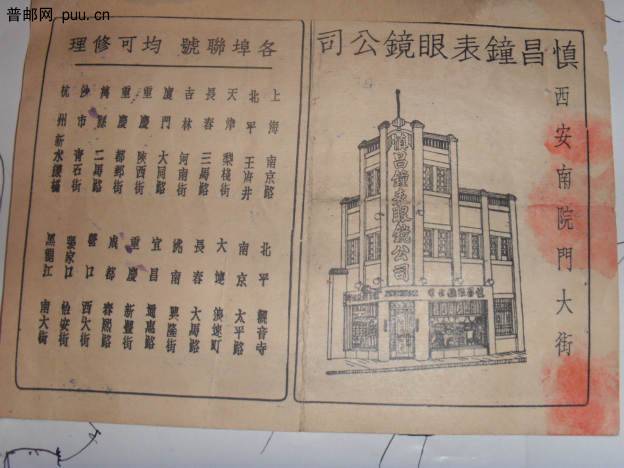 普邮网 puu.cn
慎昌鐘表眼鏡公司
西安南院門大街
慎昌鐘表眼鏡公司
各埠聯號 均可修理
上海 南京路
北平 王府井
天津 梨棧街
長春 三馬路
吉林 河南街
廈門 大同路
重慶 陝西街
重慶 都郵街
萬縣 二馬路
沙市 青石街
杭州 新水漾橋
北平 觀音寺
南京 太平路
大連 浪速町
長春 大馬路
洮南 興隆街
宜昌 通惠路
重慶 新豐街
成都 春熙路
營口 西大街
張家口 怡安街
黑龍江 南大街